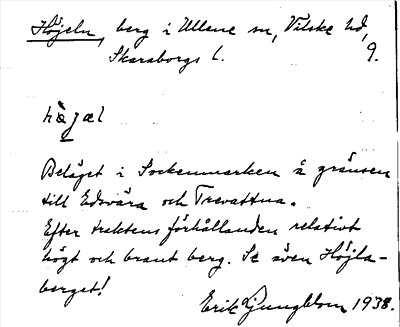 Höjeln, berg i Ullene sn, Vilske hd,
Skaraborgs l. 9.
højæl
Beläget i Sockenmarken å gränsen
till Edsvära och Trevattna.
Efter traktens förhållanden relativt
högt och brant berg. Se även Höjla-
berget!
Erik Ljungblom 1938.